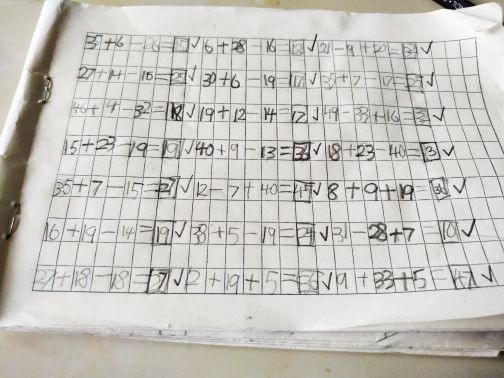 35+6-26=15✓ 6+28-16=18✓ 21-9+20=32✓
27+14-16=25✓ 30+6-19=17✓ 35+7-17=25✓
46+4-32=18✓ 19+12-14=17✓ 49-33+16=32✓
15+23-19=19✓ 40+9-13=36✓ 18+23-40=1✓
35+7-15=27✓ 12-7+40=45✓ 8+9+19=36✓
16+19-14=19✓ 38+5-19=24✓ 31-28+7=10✓
27+18-18=27✓ 12+19+5=36✓ 9+33+5=47✓